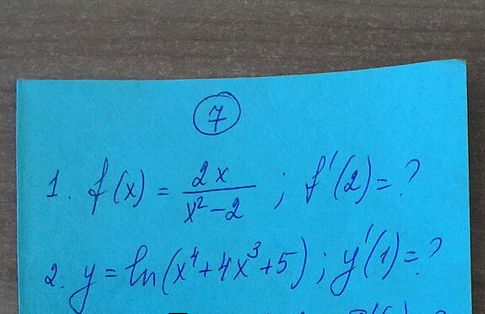 7
1. f(x) = 2x / x²-2 ; f'(2) = ?
2. y = ln(x⁴+4x³+5) ; y'(1) = ?